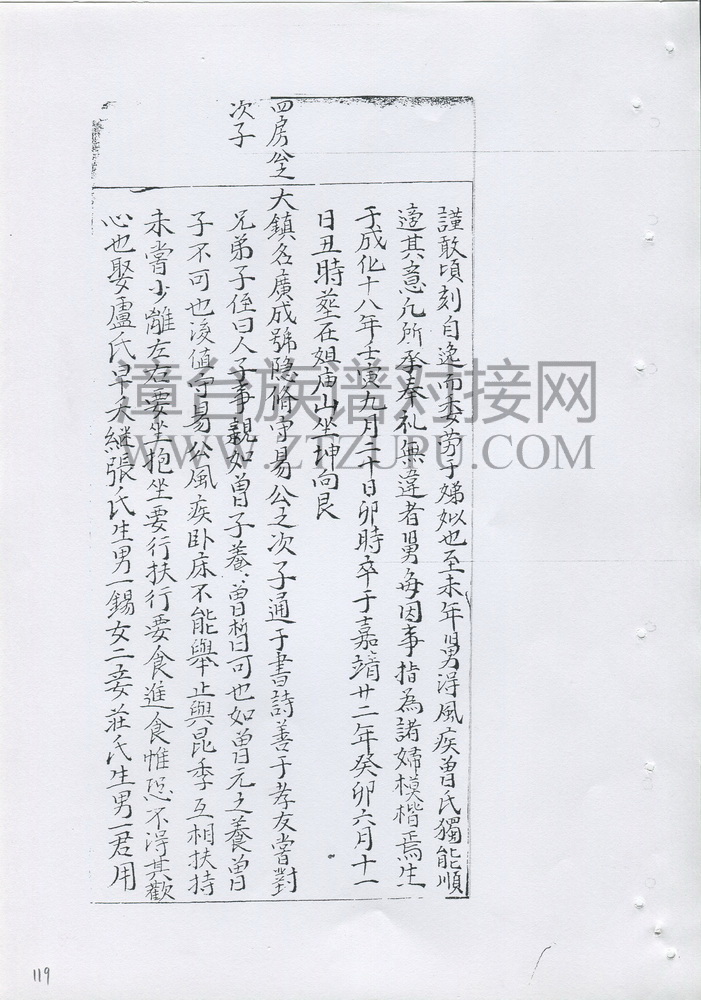 謹敢頃刻自逸而委劳于娣姒也至末年舅得風疾曾氏獨能順
適其意凡所承奉礼無違者舅每因事指為諸婦模楷焉生
于成化十八年壬寅九月二十日卯時卒于嘉靖廿二年癸卯六月十一
日丑時塟在姐庙山坐坤向艮
四房公之
次子
大鎮名廣成號隐脩守易公之次子通于書詩善于孝友嘗對
兄弟子侄曰人子事親如曾子養曾晳可也如曾元之養曾
子不可也後值守易公風疾卧床不能舉止與昆季互相扶持
未嘗少離左右要坐抱坐要行扶行要食進食惟恐不得其歡
心也娶盧氏早夭継張氏生男一錫女二妾莊氏生男一君用
漳台族谱对接网
WWW.ZTZUPU.COM
119